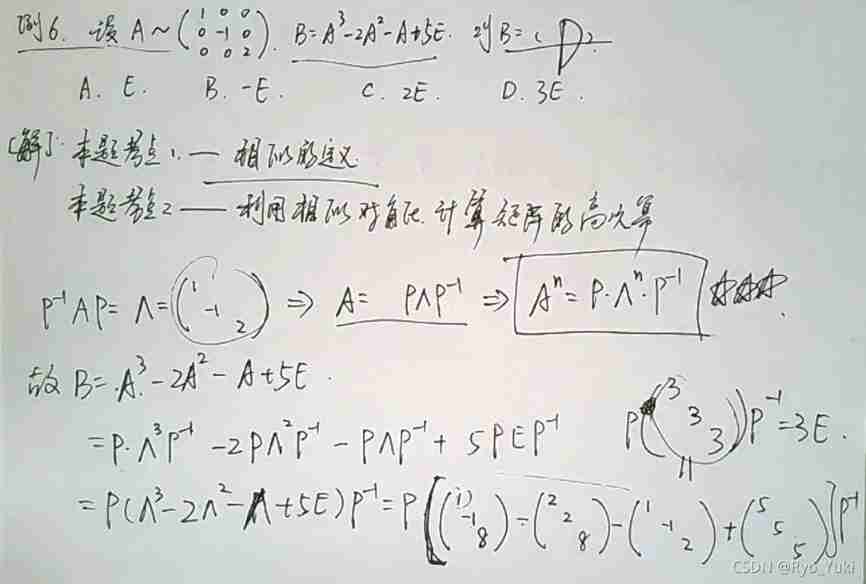 例6. 设 A ~ (1 0 0
0 -1 0
0 0 2). B=A³-2A²-A+5E. 则B=( D ).
A. E. B. -E. C. 2E. D. 3E.
[解] 本题考点1. — 相似的定义.
本题考点2 — 利用相似对角化计算矩阵的高次幂
P⁻¹AP = Λ = (1 -1 2) ⇒ A = PΛP⁻¹ ⇒ Aⁿ = P·Λⁿ·P⁻¹ ☆☆☆.
故 B = A³-2A²-A+5E.
= P·Λ³P⁻¹ - 2PΛ²P⁻¹ - PΛP⁻¹ + 5PEP⁻¹ P(3 3 3)P⁻¹ = 3E.
= P(Λ³-2Λ²-Λ+5E)P⁻¹ = P[(1 -1 8) - (2 2 8) - (1 -1 2) + (5 5 5)]P⁻¹
CSDN @Ryo_Yuki